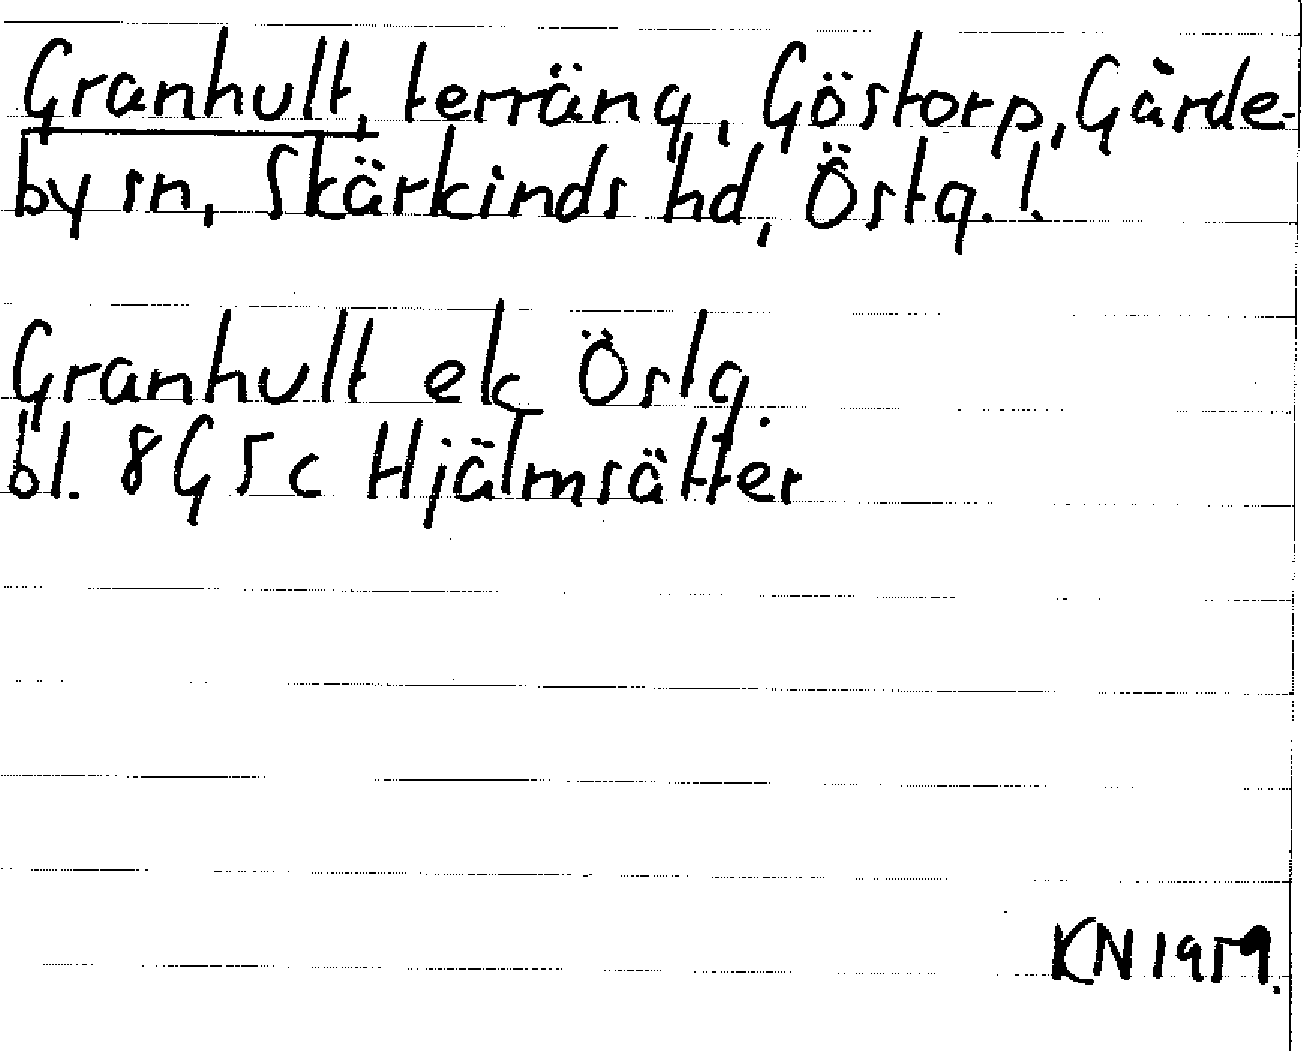 Granhult, terräng, Göstorp, Gårde-
by sn, Skärkinds hd, Östg. !.
Granhult ek Östg.
bl. 8G5c Hjälmsätter
KN 1959.